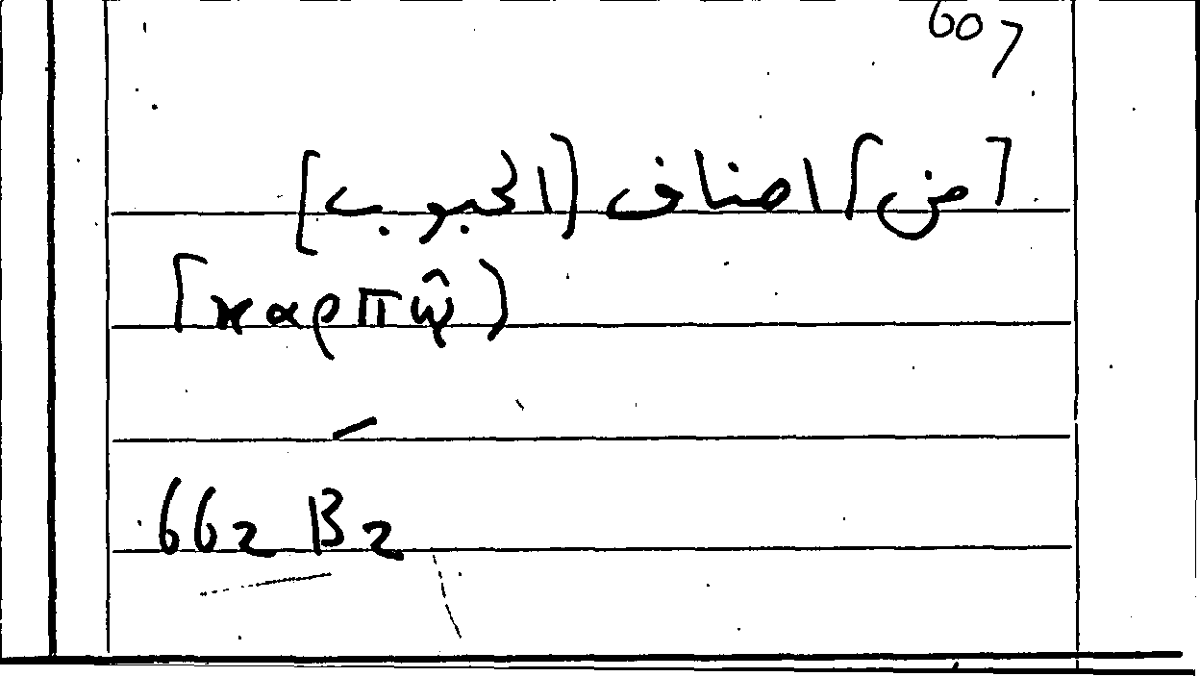 607
[من] اصناف (الحبوب]
[καρπῶ)
—
662 B2